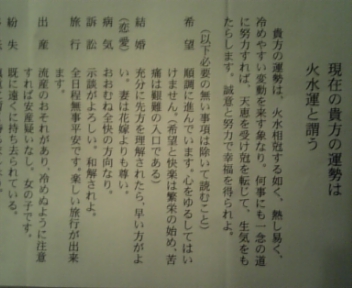 現在の貴方の運勢は
火水運と謂う
貴方の運勢は、火水相冠する如く、熱し易く、
冷めやすい変動を来す象なり、何事にも一念の道
に努力すれば、天恵を受け冠を転じて、生気をも
たらします。誠意と努力で幸福を得られよ。
(以下必要の無い事項は除いて読むこと)
希望 順調に進んでいます。心をゆるしてはい
けません。(希望と快楽は繁栄の始め、苦
痛は艱難の入口である)
結婚 充分に先方を理解されたら、早い方がよ
(恋愛) い。妻は花嫁よりも尊い。
病気 おおむね全快の方向なり。
訴訟 示談がよろしい、和解されよ。
旅行 全日程無事平安です。楽しい旅行が出来
ます。
出産 流産のおそれがあり、冷めぬように注意
すれば安産疑いなし、女の子です。
紛失 既に遠くに持ち去られている。